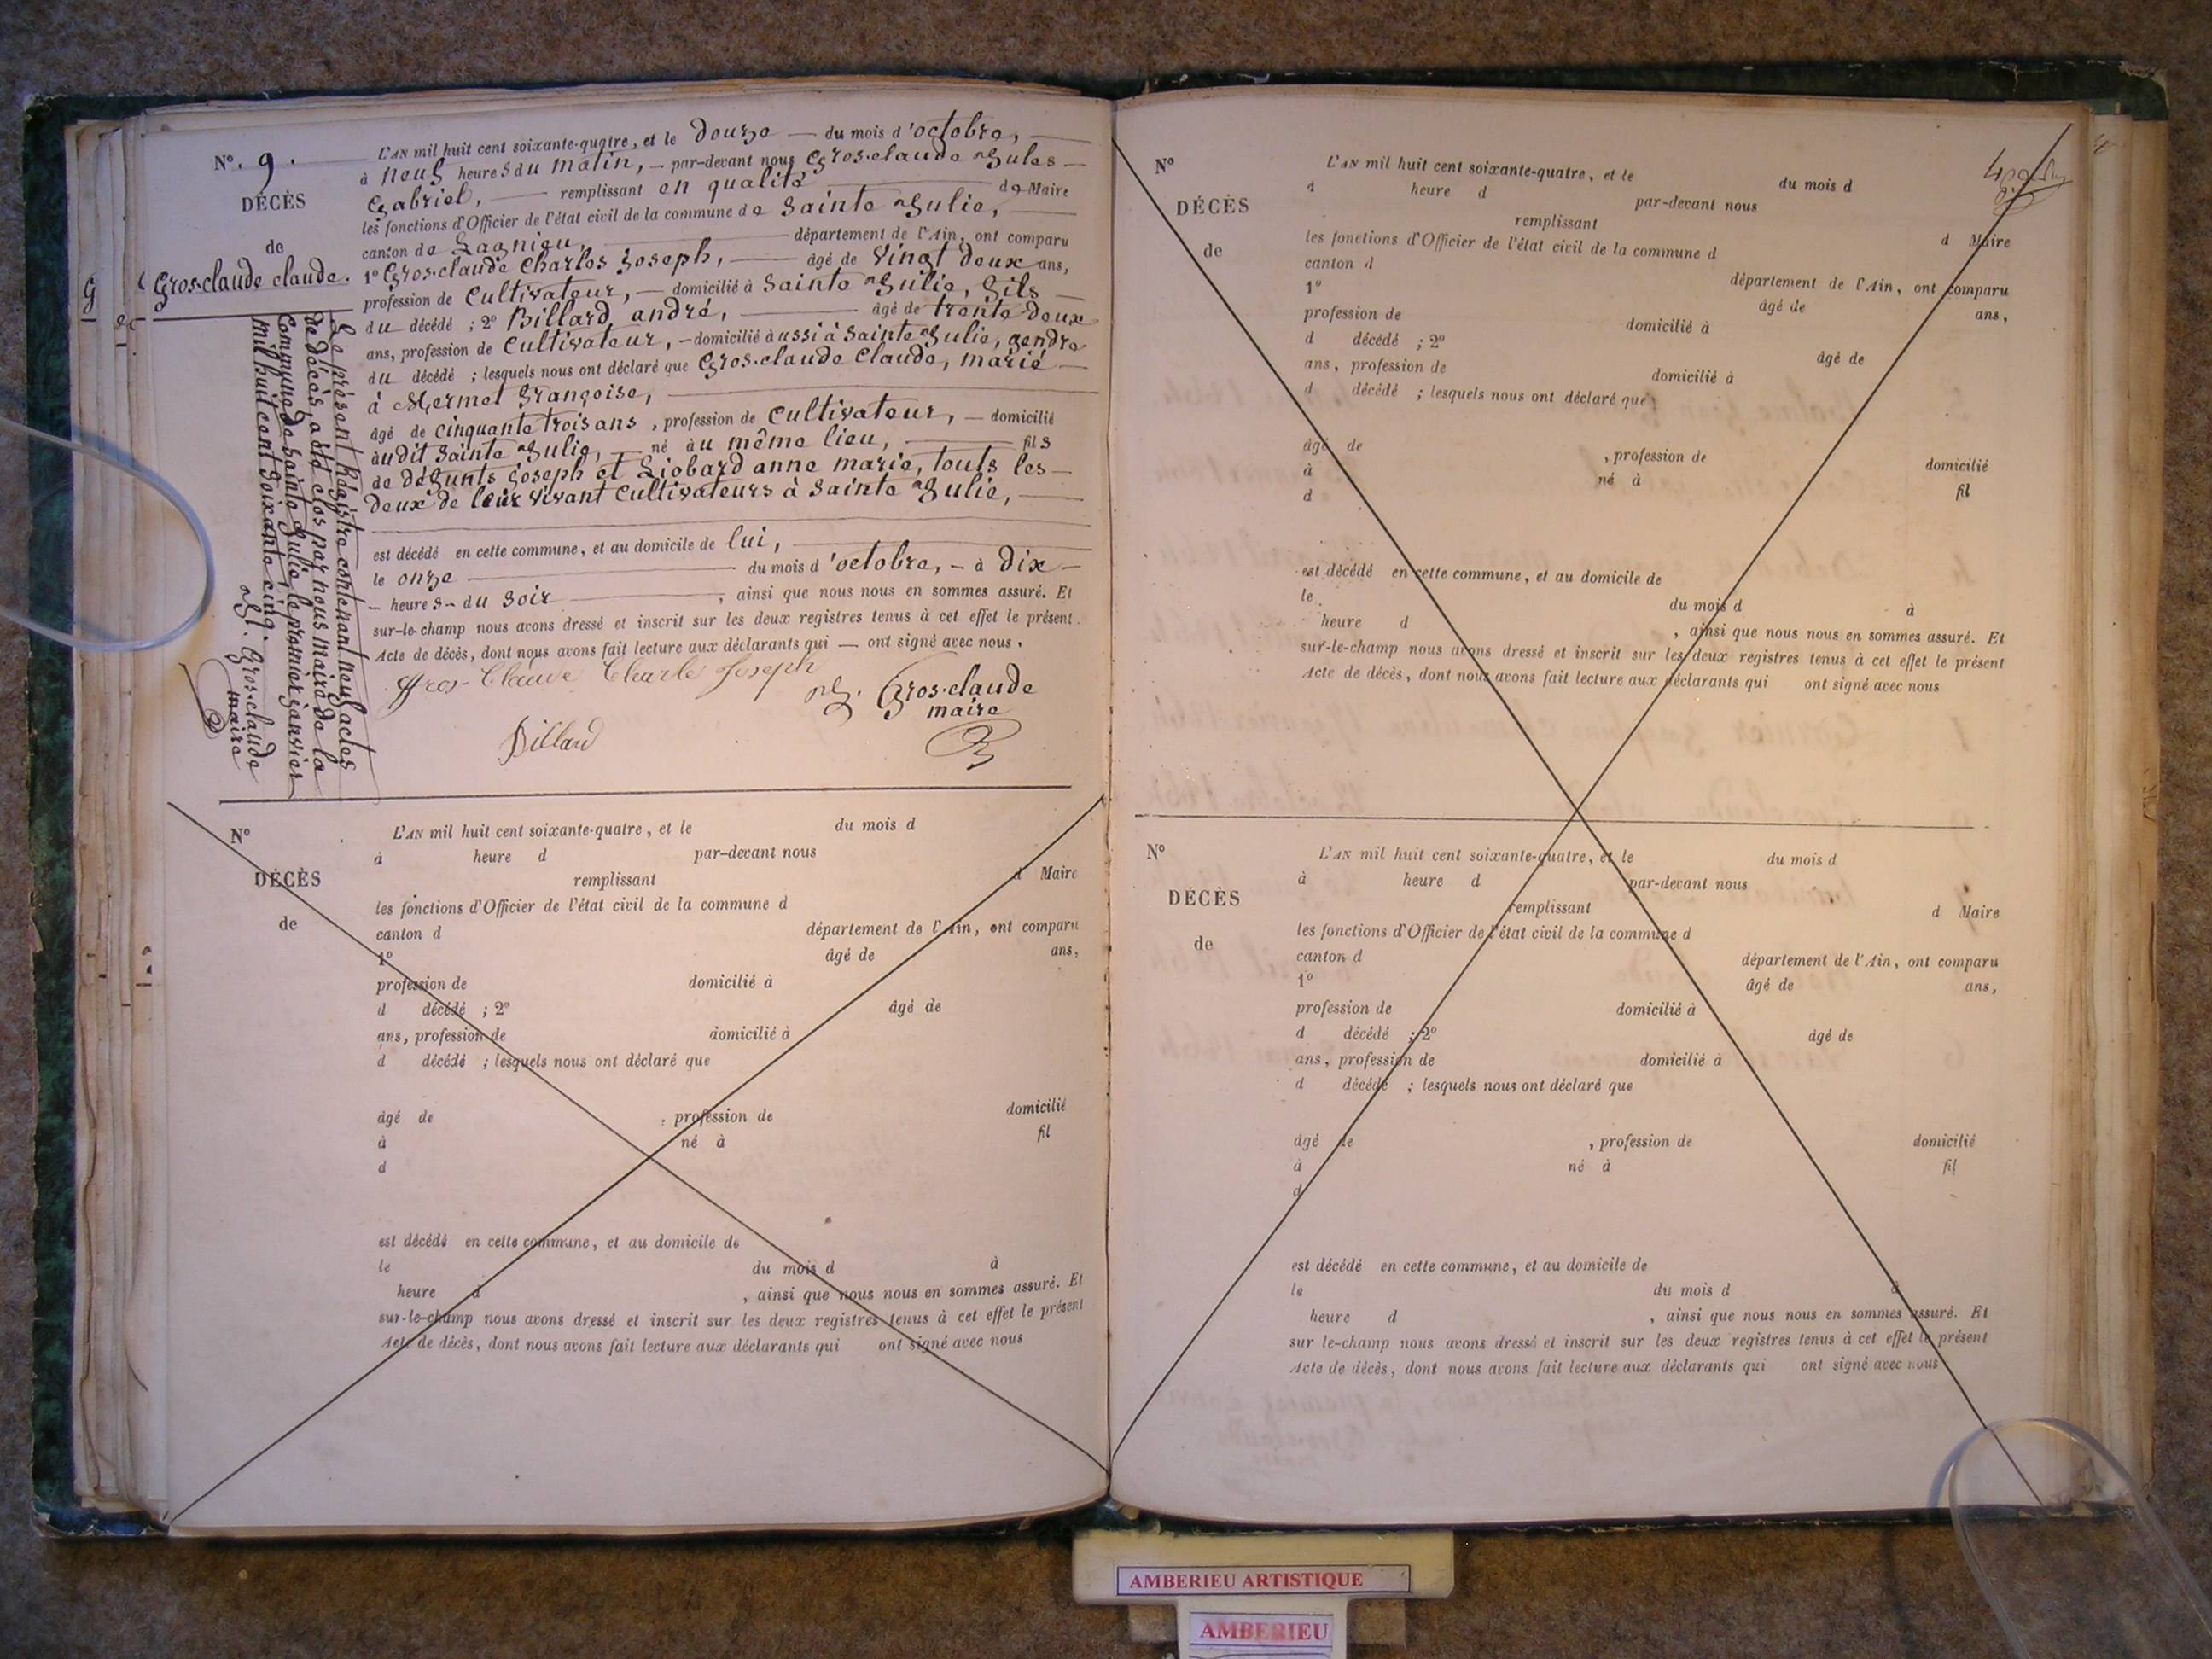 N°. 9.
DÉCÈS
de
Gros-claude claude.
G
L'AN mil huit cent soixante-quatre, et le Douze — du mois d'octobre, —
à neuf heures du matin, — par-devant nous Gros-claude Jules —
Gabriel, — remplissant en qualité de Maire
les fonctions d'Officier de l'état civil de la commune de Sainte Julie, —
canton de Lagnieu, — département de l'Ain, ont comparu
1° Gros-claude Charles Joseph, — âgé de Vingt deux ans,
profession de Cultivateur, — domicilié à Sainte Julie, fils —
du décédé ; 2° Billard andré, — âgé de trente deux
ans, profession de Cultivateur, — domicilié à aussi à Sainte Julie, gendre
du décédé ; lesquels nous ont déclaré que Gros-claude Claude, marié —
à Mermet françoise, —
âgé de cinquante trois ans, profession de Cultivateur, — domicilié
à udit Sainte Julie, — né à u même lieu, — fils
de défunts Joseph et Liobard anne marie, touts les —
deux de leur vivant Cultivateurs à Sainte Julie, —
est décédé en cette commune, et au domicile de lui, —
le onze — du mois d'octobre, — à Dix —
— heures — du Soir — , ainsi que nous nous en sommes assuré. Et
sur-le-champ nous avons dressé et inscrit sur les deux registres tenus à cet effet le présent
Acte de décès, dont nous avons fait lecture aux déclarants qui — ont signé avec nous.
Gros-Claude Charle Joseph
Gros-claude
maire
Billard
Le présent Régistre contenant neuf actes
de décès, a été clos par nous maire de la
Commune de Sainte Julie le premier janvier
mil huit cent soixante cinq.
Gros-claude
maire
N°
DÉCÈS
de
L'AN mil huit cent soixante-quatre, et le du mois d
à heure d par-devant nous
remplissant d Maire
les fonctions d'Officier de l'état civil de la commune d
canton d département de l'Ain, ont comparu
1° âgé de ans,
profession de domicilié à
d décédé ; 2° âgé de
ans, profession de domicilié à
d décédé ; lesquels nous ont déclaré que
âgé de , profession de domicilié
à né à fil
d
est décédé en cette commune, et au domicile de
le du mois d à
heure d , ainsi que nous nous en sommes assuré. Et
sur-le-champ nous avons dressé et inscrit sur les deux registres tenus à cet effet le présent
Acte de décès, dont nous avons fait lecture aux déclarants qui ont signé avec nous
N°
DÉCÈS
de
L'AN mil huit cent soixante-quatre, et le du mois d
à heure d par-devant nous
remplissant d Maire
les fonctions d'Officier de l'état civil de la commune d
canton d département de l'Ain, ont comparu
1° âgé de ans,
profession de domicilié à
d décédé ; 2° âgé de
ans, profession de domicilié à
d décédé ; lesquels nous ont déclaré que
âgé de , profession de domicilié
à né à fil
d
est décédé en cette commune, et au domicile de
le du mois d à
heure d , ainsi que nous nous en sommes assuré. Et
sur-le-champ nous avons dressé et inscrit sur les deux registres tenus à cet effet le présent
Acte de décès, dont nous avons fait lecture aux déclarants qui ont signé avec nous
N°
DÉCÈS
de
L'AN mil huit cent soixante-quatre, et le du mois d
à heure d par-devant nous
remplissant d Maire
les fonctions d'Officier de l'état civil de la commune d
canton d département de l'Ain, ont comparu
1° âgé de ans,
profession de domicilié à
d décédé ; 2° âgé de
ans, profession de domicilié à
d décédé ; lesquels nous ont déclaré que
âgé de , profession de domicilié
à né à fil
d
est décédé en cette commune, et au domicile de
le du mois d à
heure d , ainsi que nous nous en sommes assuré. Et
sur le-champ nous avons dressé et inscrit sur les deux registres tenus à cet effet le présent
Acte de décès, dont nous avons fait lecture aux déclarants qui ont signé avec nous
AMBERIEU ARTISTIQUE
AMBERIEU